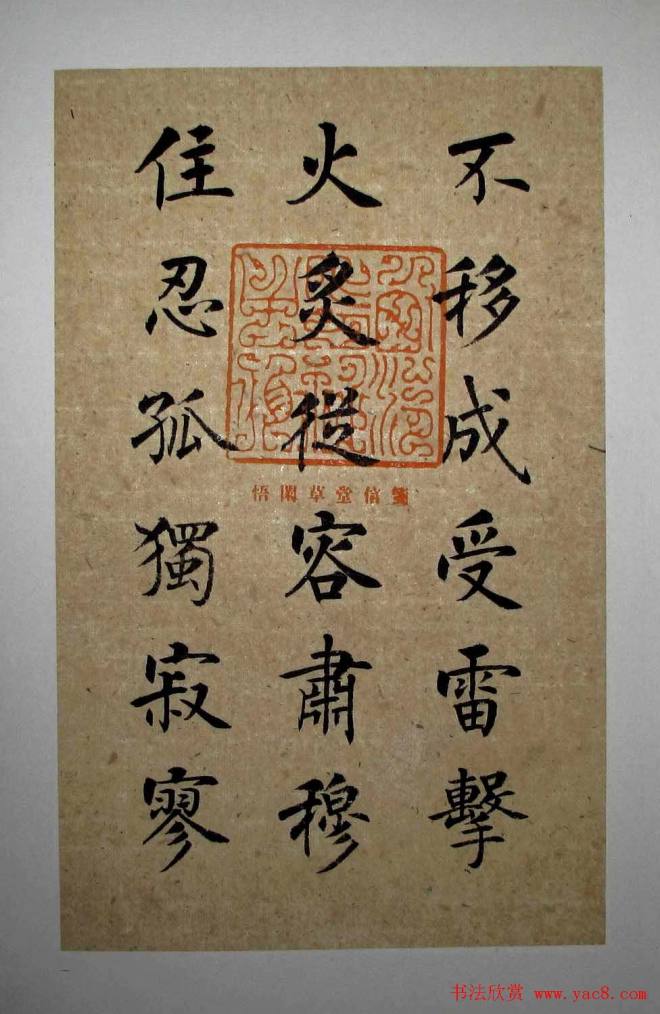 不移成受雷擊
火炙從容肅穆
住忍孤獨寂寥
悟閑草堂信箋
书法欣赏 www.yac8.com